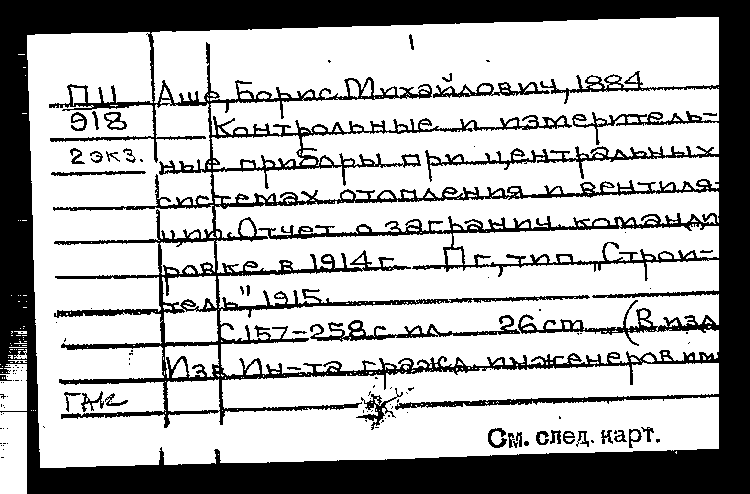 П11 Аше, Борис Михайлович, 1884
918 Контрольные и измеритель-
2 экз. ные приборы при центральных
системах отопления и вентиля-
ции. Отчет о загранич. команди
ровке в 1914 г. Пг, тип. „Строи-
тель", 1915.
С. 157-258 с ил. 26 cm (В изд
Изв Ин-та гражд. инженеров им
ГАК
См. след. карт.